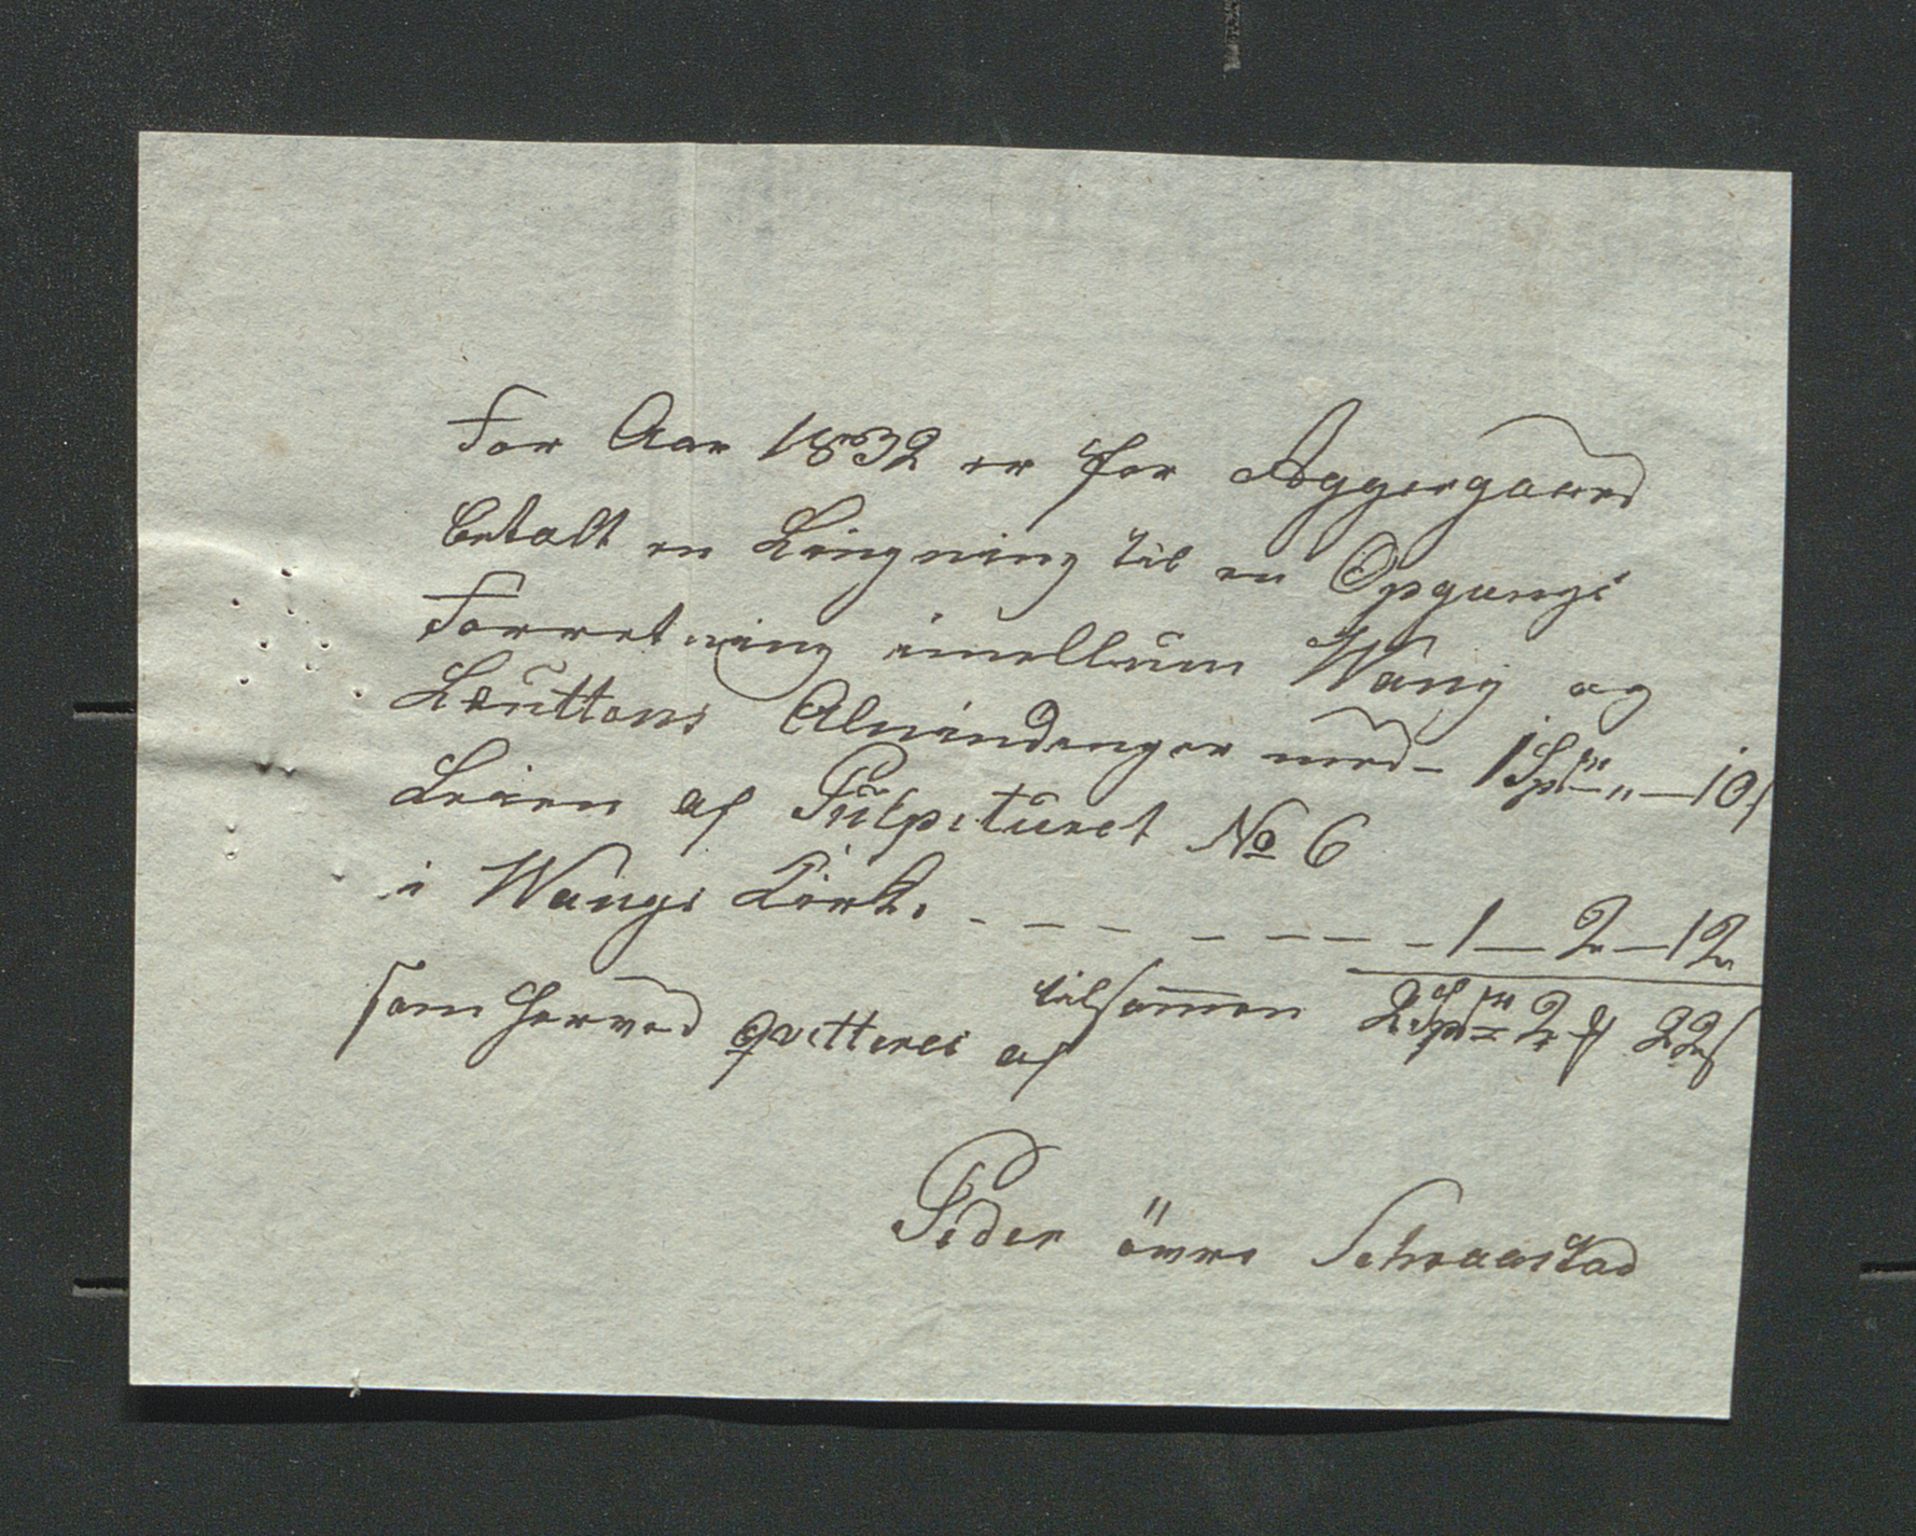 For Aar 1832 er for Aggergaard
betalt en Lingning til en Opgangs
Forretning imellum Wang og
Leuttens Almindenger med – 1 Spd „ – 10 s
Leien af Pulpituret No 6
i Wangs Kirke - - - - - - - - 1 – 2 – 12
tilsammen 2 Spd 2 ort 22 s
som herved qvitteres af
Peder öwre Schraastad